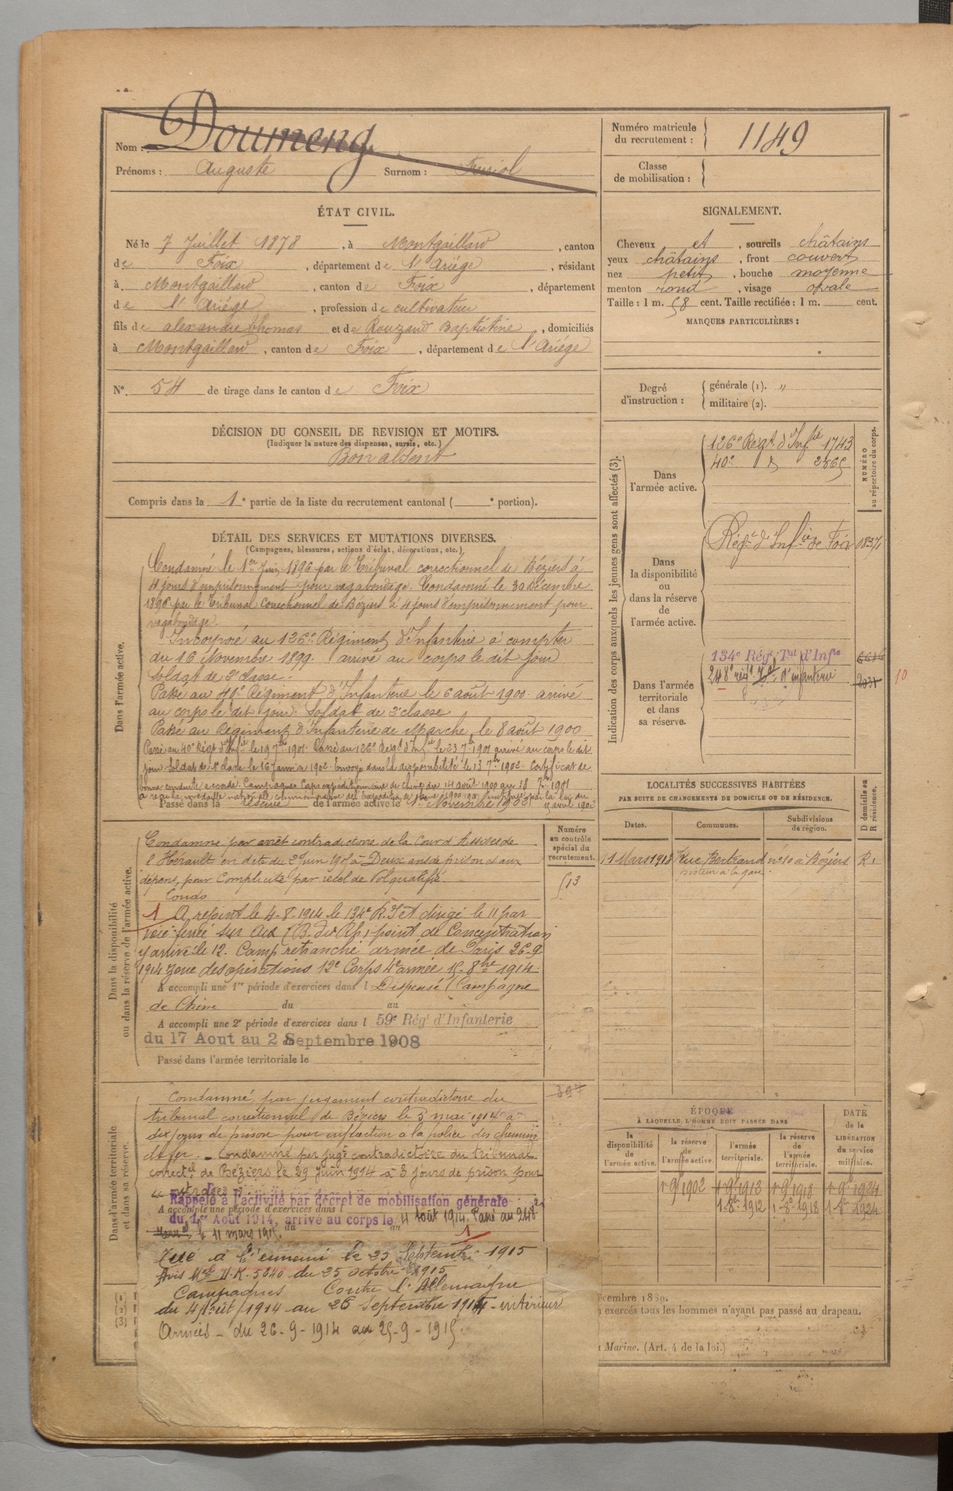 Nom : Doumeng
Prénoms : Auguste Surnom :
Numéro matricule du recrutement : 1149
Classe de mobilisation :
ÉTAT CIVIL.
Né le 7 Juillet 1878, à Montgaillard, canton
de Foix, département de l'Ariége, résidant
à Montgaillard, canton de Foix, département
de l'Ariége, profession de cultivateur
fils de alexandre thomas et de Rouzaud Baptistine, domiciliés
à Montgaillard, canton de Foix, département de l'Ariége
N° 54 de tirage dans le canton de Foix
SIGNALEMENT.
Cheveux et, sourcils châtains
yeux châtains, front couvert
nez petit, bouche moyenne
menton rond, visage ovale
Taille : 1 m. 58 cent. Taille rectifiée : 1 m. cent.
MARQUES PARTICULIÈRES :
Degré d'instruction : générale (1). "
militaire (2).
DÉCISION DU CONSEIL DE REVISION ET MOTIFS.
(Indiquer la nature des dispenses, sursis, etc.)
Bon absent
Compris dans la 1e partie de la liste du recrutement cantonal ( e portion).
DÉTAIL DES SERVICES ET MUTATIONS DIVERSES.
(Campagnes, blessures, actions d'éclat, décorations, etc.)
Dans l'armée active.
Condamné le 1er Juin 1896 par le Tribunal correctionnel de Béziers à
4 jours d'emprisonnement pour vagabondage. Condamné le 30 Décembre
1896 par le Tribunal Correctionnel de Béziers à 4 jours d'emprisonnement pour
vagabondage.
Incorporé au 126e Régiment d'Infanterie à compter
du 16 Novembre 1899. arrivé au corps le dit jour
Soldat de 2e classe.
Passé au 40e Régiment d'Infanterie le 6 août 1900. arrivé
au corps le dit jour. Soldat de 2e classe
Passé au Régiment d'Infanterie de Marche, le 8 août 1900
Passé au 40e Régt d'Infie le 19 7bre 1901. Passé au 126e Régt d'Infie le 23 7bre 1901 arrivé au corps le dit
jour Soldat de 1e classe le 16 Janvier 1902. Envoyé dans la disponibilité le 13 7bre 1902. Certificat de
bonne conduite accordé. Campagnes Corps expéditionnaire de Chine du 14 août 1900 au 18 7bre 1901
Passé dans la réserve de l'armée active le 1er Novembre 190
Dans la disponibilité ou dans la réserve de l'armée active.
Numéro au contrôle spécial du recrutement.
513
Condamné par arrêt contradictoire de la Cour d'Assises de
l'Hérault en date du 2 Juin 190 à Deux ans de prison et aux
dépens, pour Complicité par recel de Vol qualifié
1 A rejoint le 4-8-1914 le 134e R.I.T et dirigé le 11 par
voie ferrée sur Aix (B. du Rh.) point de Concentration
y arrivé le 12. Camp retranché armée de Paris 26-9
1914 zone des opérations 12e Corps 4e armée 15 8bre 1914
A accompli une 1re période d'exercices dans l Dispensé (Campagne
de Chine du au
A accompli une 2e période d'exercices dans l 59e Rég' d'Infanterie
du 17 Aout au 2 Septembre 1908
Passé dans l'armée territoriale le
Dans l'armée territoriale et dans sa réserve.
Condamné, par jugement contradictoire du
tribunal correctionnel de Béziers le 3 mai 1914 à
dix jours de prison pour infraction à la police des chemins
de fer. - Condamné par jugt contradictoire du tribunal
correctel de Béziers le 29 Juin 1914 à 3 jours de prison pour
Rappelé à l'activité par décret de mobilisation générale
A accompli une période d'exercices dans l
du 1er Août 1914, arrivé au corps le 4 août 1914. Passé au 248e
le 11 mars 1915. 1
Tué à l'ennemi le 25 Septembre 1915
Avis Mel du 25 octobre 1915
Campagnes Contre l'Allemagne
du 4 Août 1914 au 25 septembre 1914 - intérieur
Armées - du 26-9-1914 au 25-9-1915
Indication des corps auxquels les jeunes gens sont affectés (3).
NUMÉRO au répertoire du corps.
Dans l'armée active.
126e Régt d'Infie 1743
40e d 2365
Dans la disponibilité ou dans la réserve de l'armée active.
Régt d'Infie de Foix
Dans l'armée territoriale et dans sa réserve.
134e Rég' Tal d'Infie
248e d'infanterie
10
LOCALITÉS SUCCESSIVES HABITÉES
PAR SUITE DE CHANGEMENTS DE DOMICILE OU DE RÉSIDENCE.
Dates. Communes. Subdivisions de région. D domicile ou R résidence.
11 Mars 1913 Rue Bertrand n° 10 à Béziers R.
ÉPOQUE
À LAQUELLE L'HOMME DOIT PASSER DANS
DATE de la LIBÉRATION du service militaire.
la disponibilité de l'armée active.
la réserve de l'armée active.
l'armée territoriale.
la réserve de l'armée territoriale.
1 9 1902 1 9 1912 1 9 1918 1 9 1924
1 8 1912 1 8 1918 1 8 1924
exercés tous les hommes n'ayant pas passé au drapeau.
Marine. (Art. 4 de la loi.)